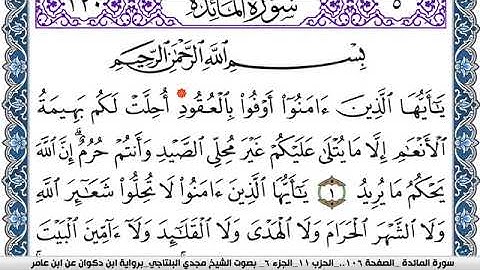 ١٢٠ سورة المائدة ٥
بِسْمِ اللَّهِ الرَّحْمَٰنِ الرَّحِيمِ
يَٰٓأَيُّهَا الَّذِينَ ءَامَنُوٓا۟ أَوْفُوا۟ بِالْعُقُودِ أُحِلَّتْ لَكُم بَهِيمَةُ
الْأَنْعَٰمِ إِلَّا مَا يُتْلَىٰ عَلَيْكُمْ غَيْرَ مُحِلِّى الصَّيْدِ وَأَنتُمْ حُرُمٌ ۗ إِنَّ اللَّهَ
يَحْكُمُ مَا يُرِيدُ ١ يَٰٓأَيُّهَا الَّذِينَ ءَامَنُوا۟ لَا تُحِلُّوا۟ شَعَٰٓئِرَ اللَّهِ
وَلَا الشَّهْرَ الْحَرَامَ وَلَا الْهَدْىَ وَلَا الْقَلَٰٓئِدَ وَلَآ ءَآمِّينَ الْبَيْتَ
سورة المائدة_الصفحة ١٠٦..الحزب ١١_الجزء ٦_ بصوت الشيخ مجدي البلتاجي_برواية ابن ذكوان عن ابن عامر